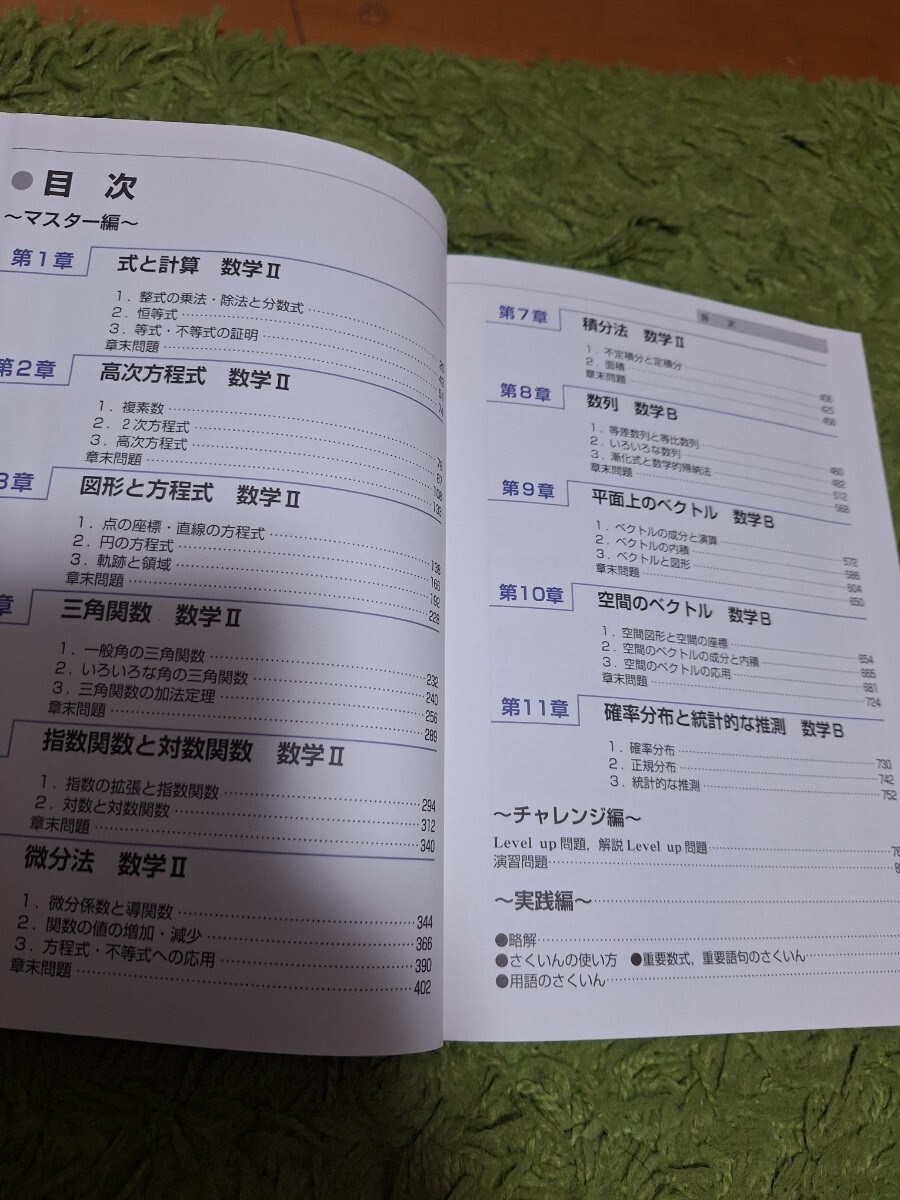 ●目 次
～マスター編～
第1章 式と計算 数学Ⅱ
1．整式の乗法・除法と分数式
2．恒等式
3．等式・不等式の証明
章末問題 74
第2章 高次方程式 数学Ⅱ
1．複素数 78
2．2次方程式 87
3．高次方程式 108
章末問題 132
3章 図形と方程式 数学Ⅱ
1．点の座標・直線の方程式 138
2．円の方程式 166
3．軌跡と領域 192
章末問題 228
章 三角関数 数学Ⅱ
1．一般角の三角関数 232
2．いろいろな角の三角関数 240
3．三角関数の加法定理 256
章末問題 289
指数関数と対数関数 数学Ⅱ
1．指数の拡張と指数関数 294
2．対数と対数関数 312
章末問題 340
微分法 数学Ⅱ
1．微分係数と導関数 344
2．関数の値の増加・減少 366
3．方程式・不等式への応用 390
章末問題 402
目 次
第7章 積分法 数学Ⅱ
1．不定積分と定積分 406
2．面積 425
章末問題 456
第8章 数列 数学B
1．等差数列と等比数列 460
2．いろいろな数列 482
3．漸化式と数学的帰納法 512
章末問題 568
第9章 平面上のベクトル 数学B
1．ベクトルの成分と演算 572
2．ベクトルの内積 586
3．ベクトルと図形 604
章末問題 650
第10章 空間のベクトル 数学B
1．空間図形と空間の座標 654
2．空間のベクトルの成分と内積 665
3．空間のベクトルの応用 681
章末問題 724
第11章 確率分布と統計的な推測 数学B
1．確率分布 730
2．正規分布 742
3．統計的な推測 752
～チャレンジ編～
Level up 問題，解説 Level up 問題
演習問題
～実践編～
●略解
●さくいんの使い方 ●重要数式，重要語句のさくいん
●用語のさくいん